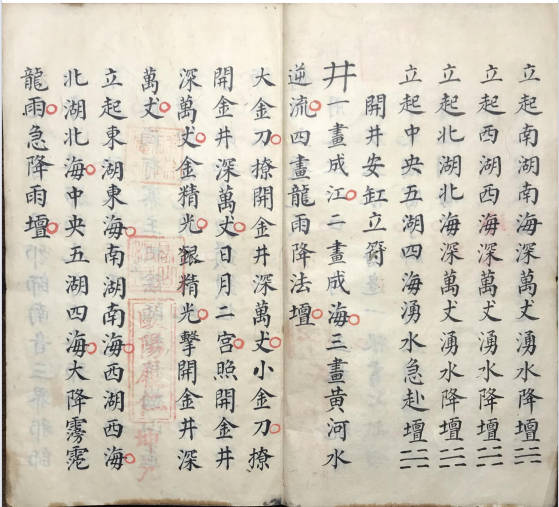 立起南湖南海深萬丈湧水降壇〻
立起西湖西海深萬丈湧水降壇〻
立起北湖北海深萬丈湧水降壇〻
立起中央五湖四海湧水急赴壇〻
開井安缸立符
井一畫成江二畫成海三畫黃河水
逆流四畫龍雨降法壇
大金刀撩開金井深萬丈小金刀撩
開金井深萬丈日月二宮照開金井
深萬丈金精光銀精光擊開金井深
萬丈
立起東湖東海南湖南海西湖西海
北湖北海中央五湖四海大降雰霓
龍雨急降雨壇